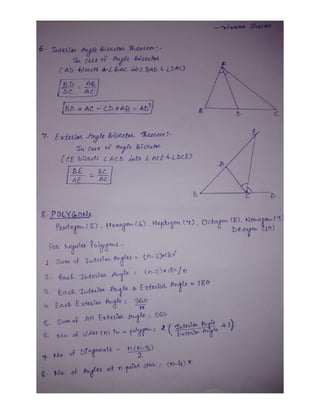 6. Interior Angle Bisector Theorem:-
In case of Angle Bisector
(AD bisects ∠BAC into ∠BAD & ∠DAC)
BD/DC = AB/AC
BD × AC - CD × AB = AD²
A
B D C
7. Exterior Angle Bisector Theorem:-
In Case of Angle Bisector
(CE bisects ∠ACD into ∠ACE & ∠DCE)
BE/AE = BC/AC
B C D
8. POLYGONS
Pentagon (5), Hexagon (6), Heptagon (7), Octagon (8), Nonagon (9)
Decagon (10)
For Regular Polygons -
1. Sum of Interior Angles = (n-2)×180°
2. Each Interior Angle = (n-2)×180/n
3. Each Interior Angle + Exterior Angle = 180
4. Each Exterior Angle = 360/n
5. Sum of All Exterior Angle = 360
6. No. of sides (n) in a polygon = 2 (Interior Angle/Exterior Angle + 1)
7. No. of Diagonals = n(n-3)/2
8. No. of Angles at n point star = (n-4)π